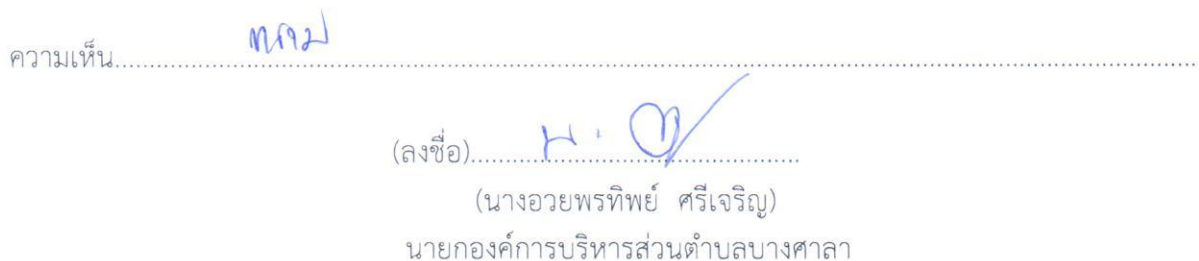 ความเห็น........ทราบ........
(ลงชื่อ)................
(นางอวยพรทิพย์ ศรีเจริญ)
นายกองค์การบริหารส่วนตำบลบางศาลา